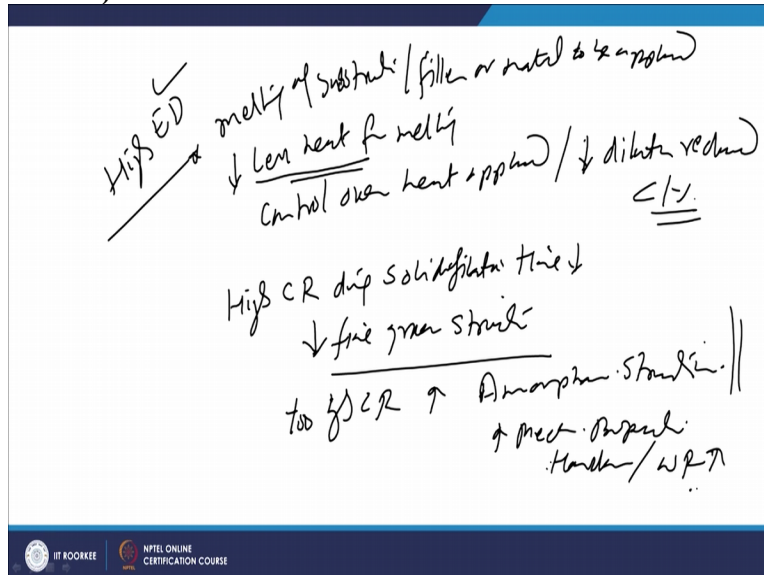 High ED
melting of substrate / filler or matel to be applied
↓ Less heat for melting
Control over heat applied / ↓ dilution reduced
High CR during solidification time ↓
↓ fine grain structure
too high CR ↑ Amorphous structure
↑ mech. properties
Hardness / WR ↑
IIT ROORKEE
NPTEL ONLINE
CERTIFICATION COURSE